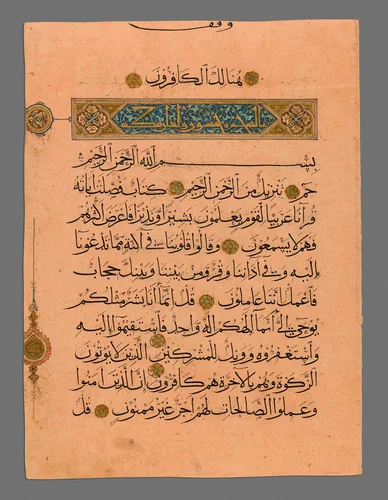 وقف
هنالك الكافرون
بسم الله الرحمن الرحيم
حم تنزيل من الرحمن الرحيم كتاب فصلت اياته
قرآنا عربيا لقوم يعلمون بشيرا ونذيرا فاعرض اكثرهم
فهم لا يسمعون وقالوا قلوبنا في اكنة مما تدعونا
اليه وفي آذاننا وقر ومن بيننا وبينك حجاب
فاعمل اننا عاملون قل انما انا بشر مثلكم
يوحى الي انما الهكم اله واحد فاستقيموا اليه
واستغفروه وويل للمشركين الذين لا يوتون
الزكوة وهم بالاخرة هم كافرون ان الذين امنوا
وعملوا الصالحات لهم اجر غير ممنون قل